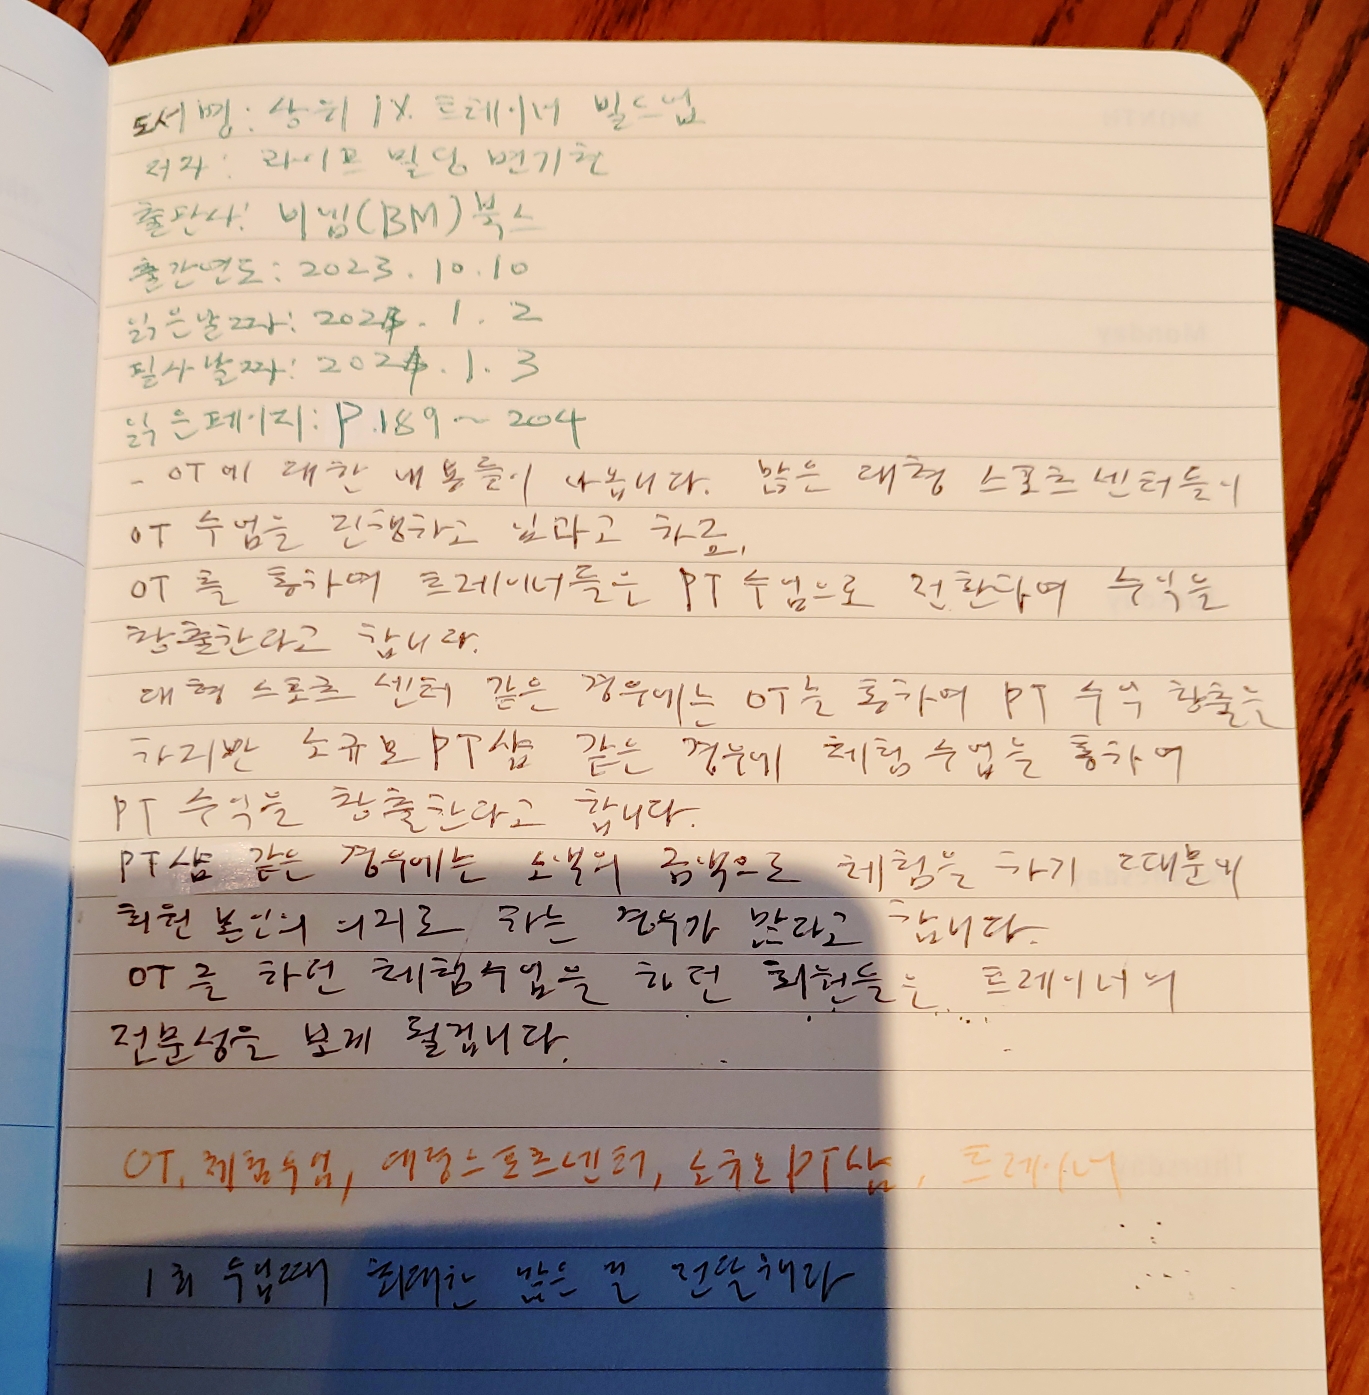 도서명: 상위 1% 트레이너 빌드업
저자: 라이프 빌딩 변기현
출판사: 비엠(BM)북스
출간연도: 2023.10.10
읽은날짜: 2024.1.2
필사날짜: 2024.1.3
읽은페이지: P.189~204
- OT에 대한 내용들이 나옵니다. 많은 대형 스포츠센터들이
OT 수업을 진행하고
OT를 통하여 트레이너들은 PT수업으로 전환하여 수익을
창출한다고 합니다.
대형 스포츠 센터 같은 경우에는 OT를 통하여 PT 수익 창출을
하지만 소규모PT샵 같은 경우에 체험수업을 통하여
PT 수익을 창출한다고 합니다.
PT샵 같은 경우에는 소액의 금액으로 체험을 하기 때문에
회원 본인의 의지로 하는 경우가 많다고 합니다.
OT를 하던 체험수업을 하던 회원들은 트레이너의
전문성을 보게 될겁니다.
OT, 체험수업, 대형스포츠센터, 소규모PT샵, 트레이너
1회 수업때 최대한 많은 걸 전달해라